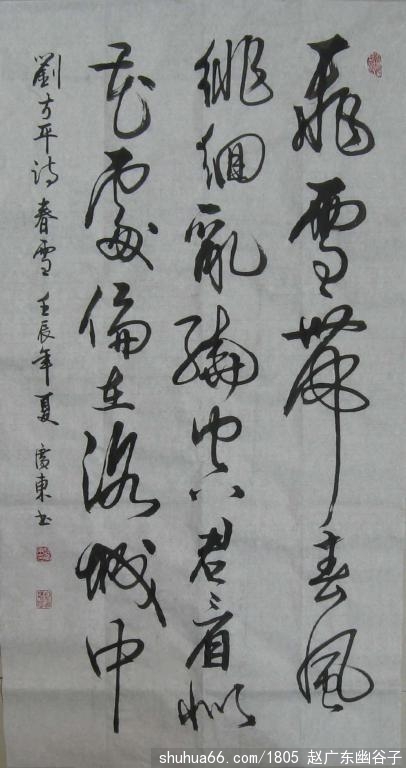 飛雪帶春風
徘徊亂繞空君看似
花處偏在洛城中
劉方平詩春雪壬辰年夏廣東书
shuhua66.com/1805 赵广东幽谷子